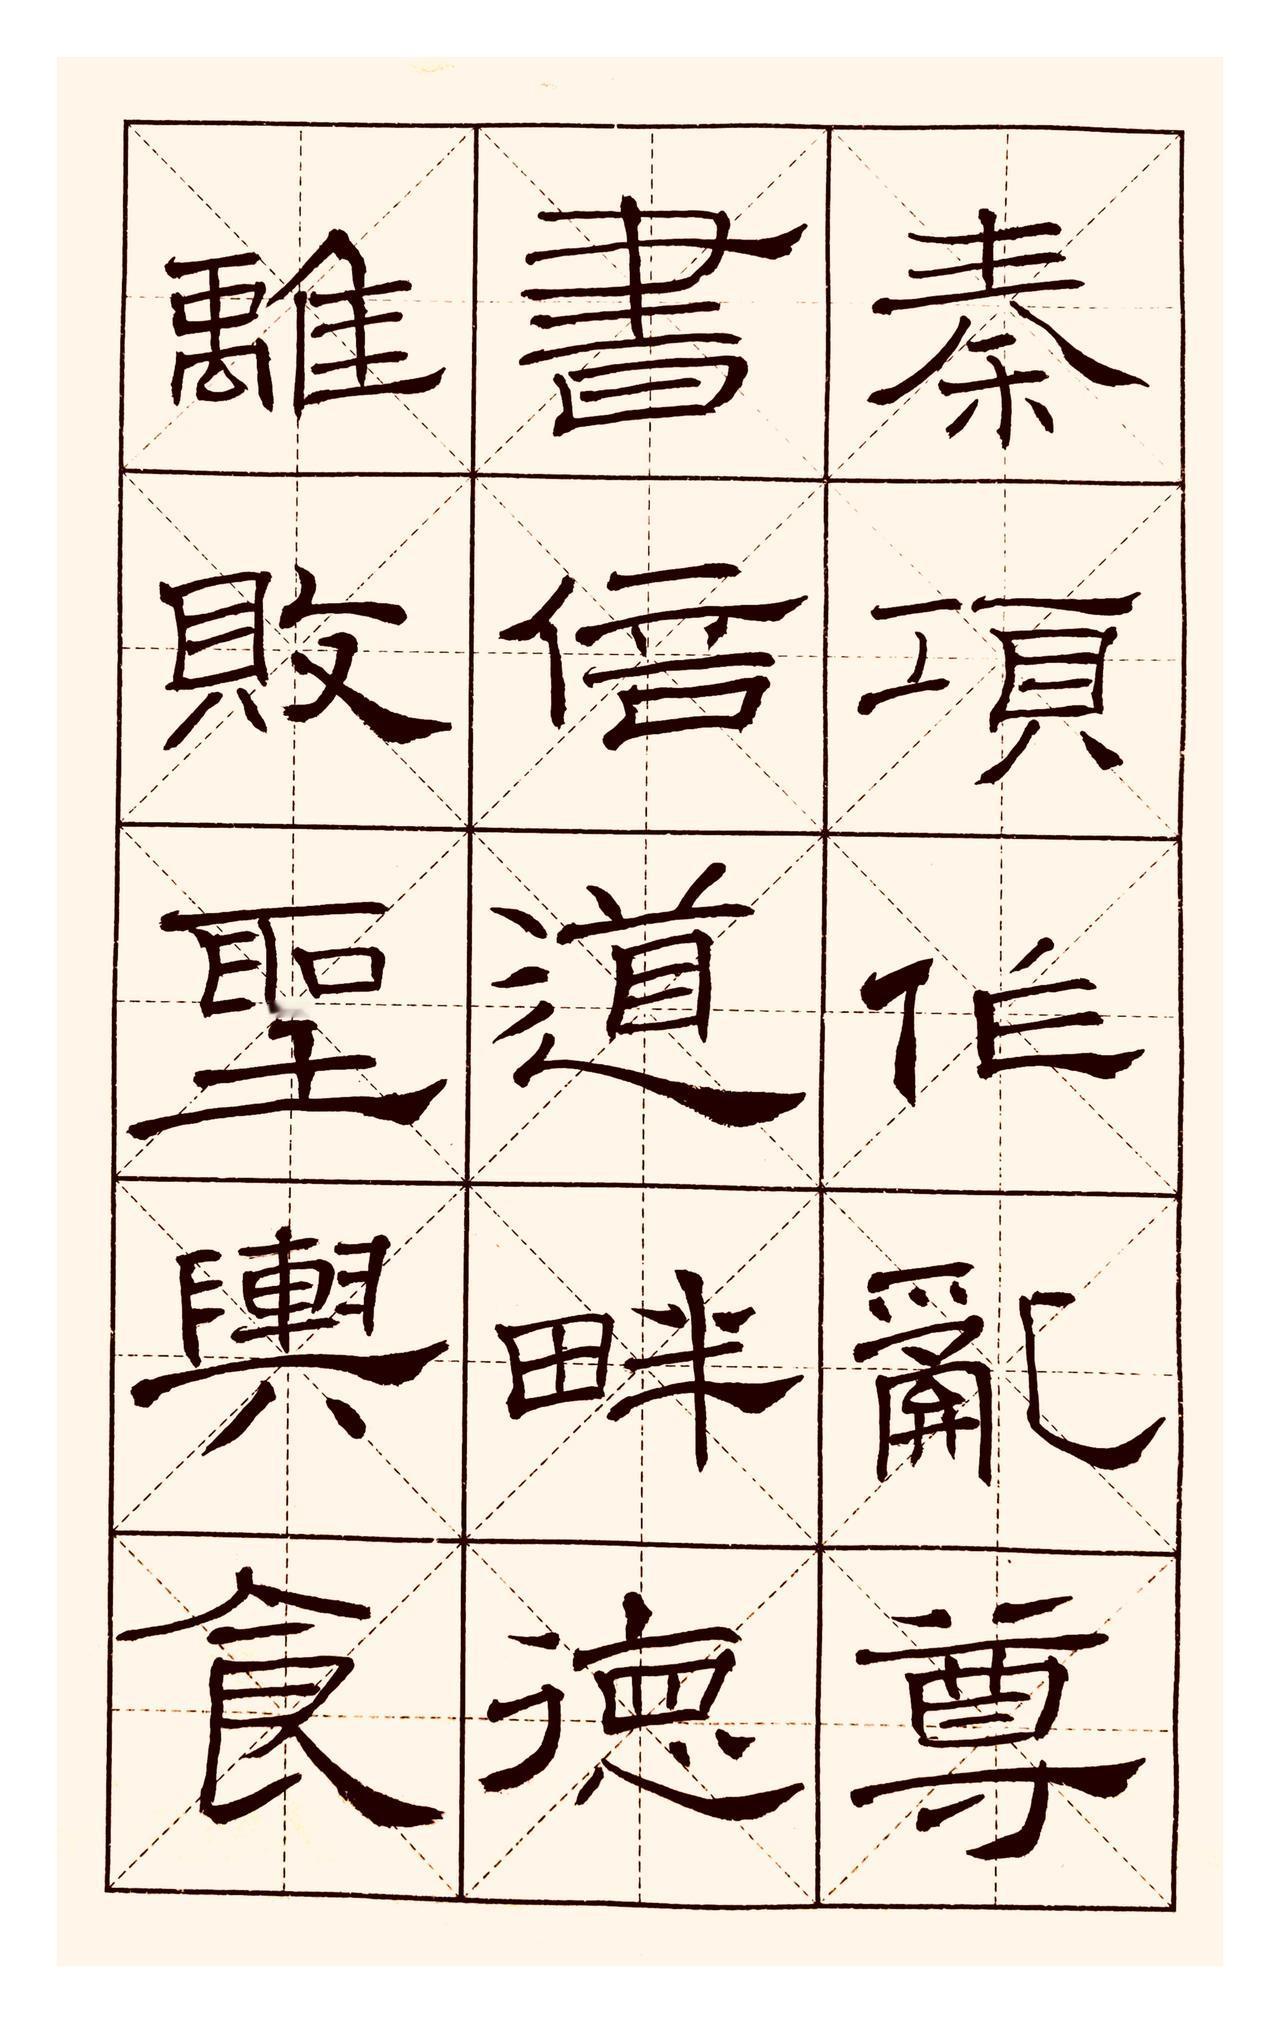 秦項作亂尊
書倍道畔德
離敗聖輿食